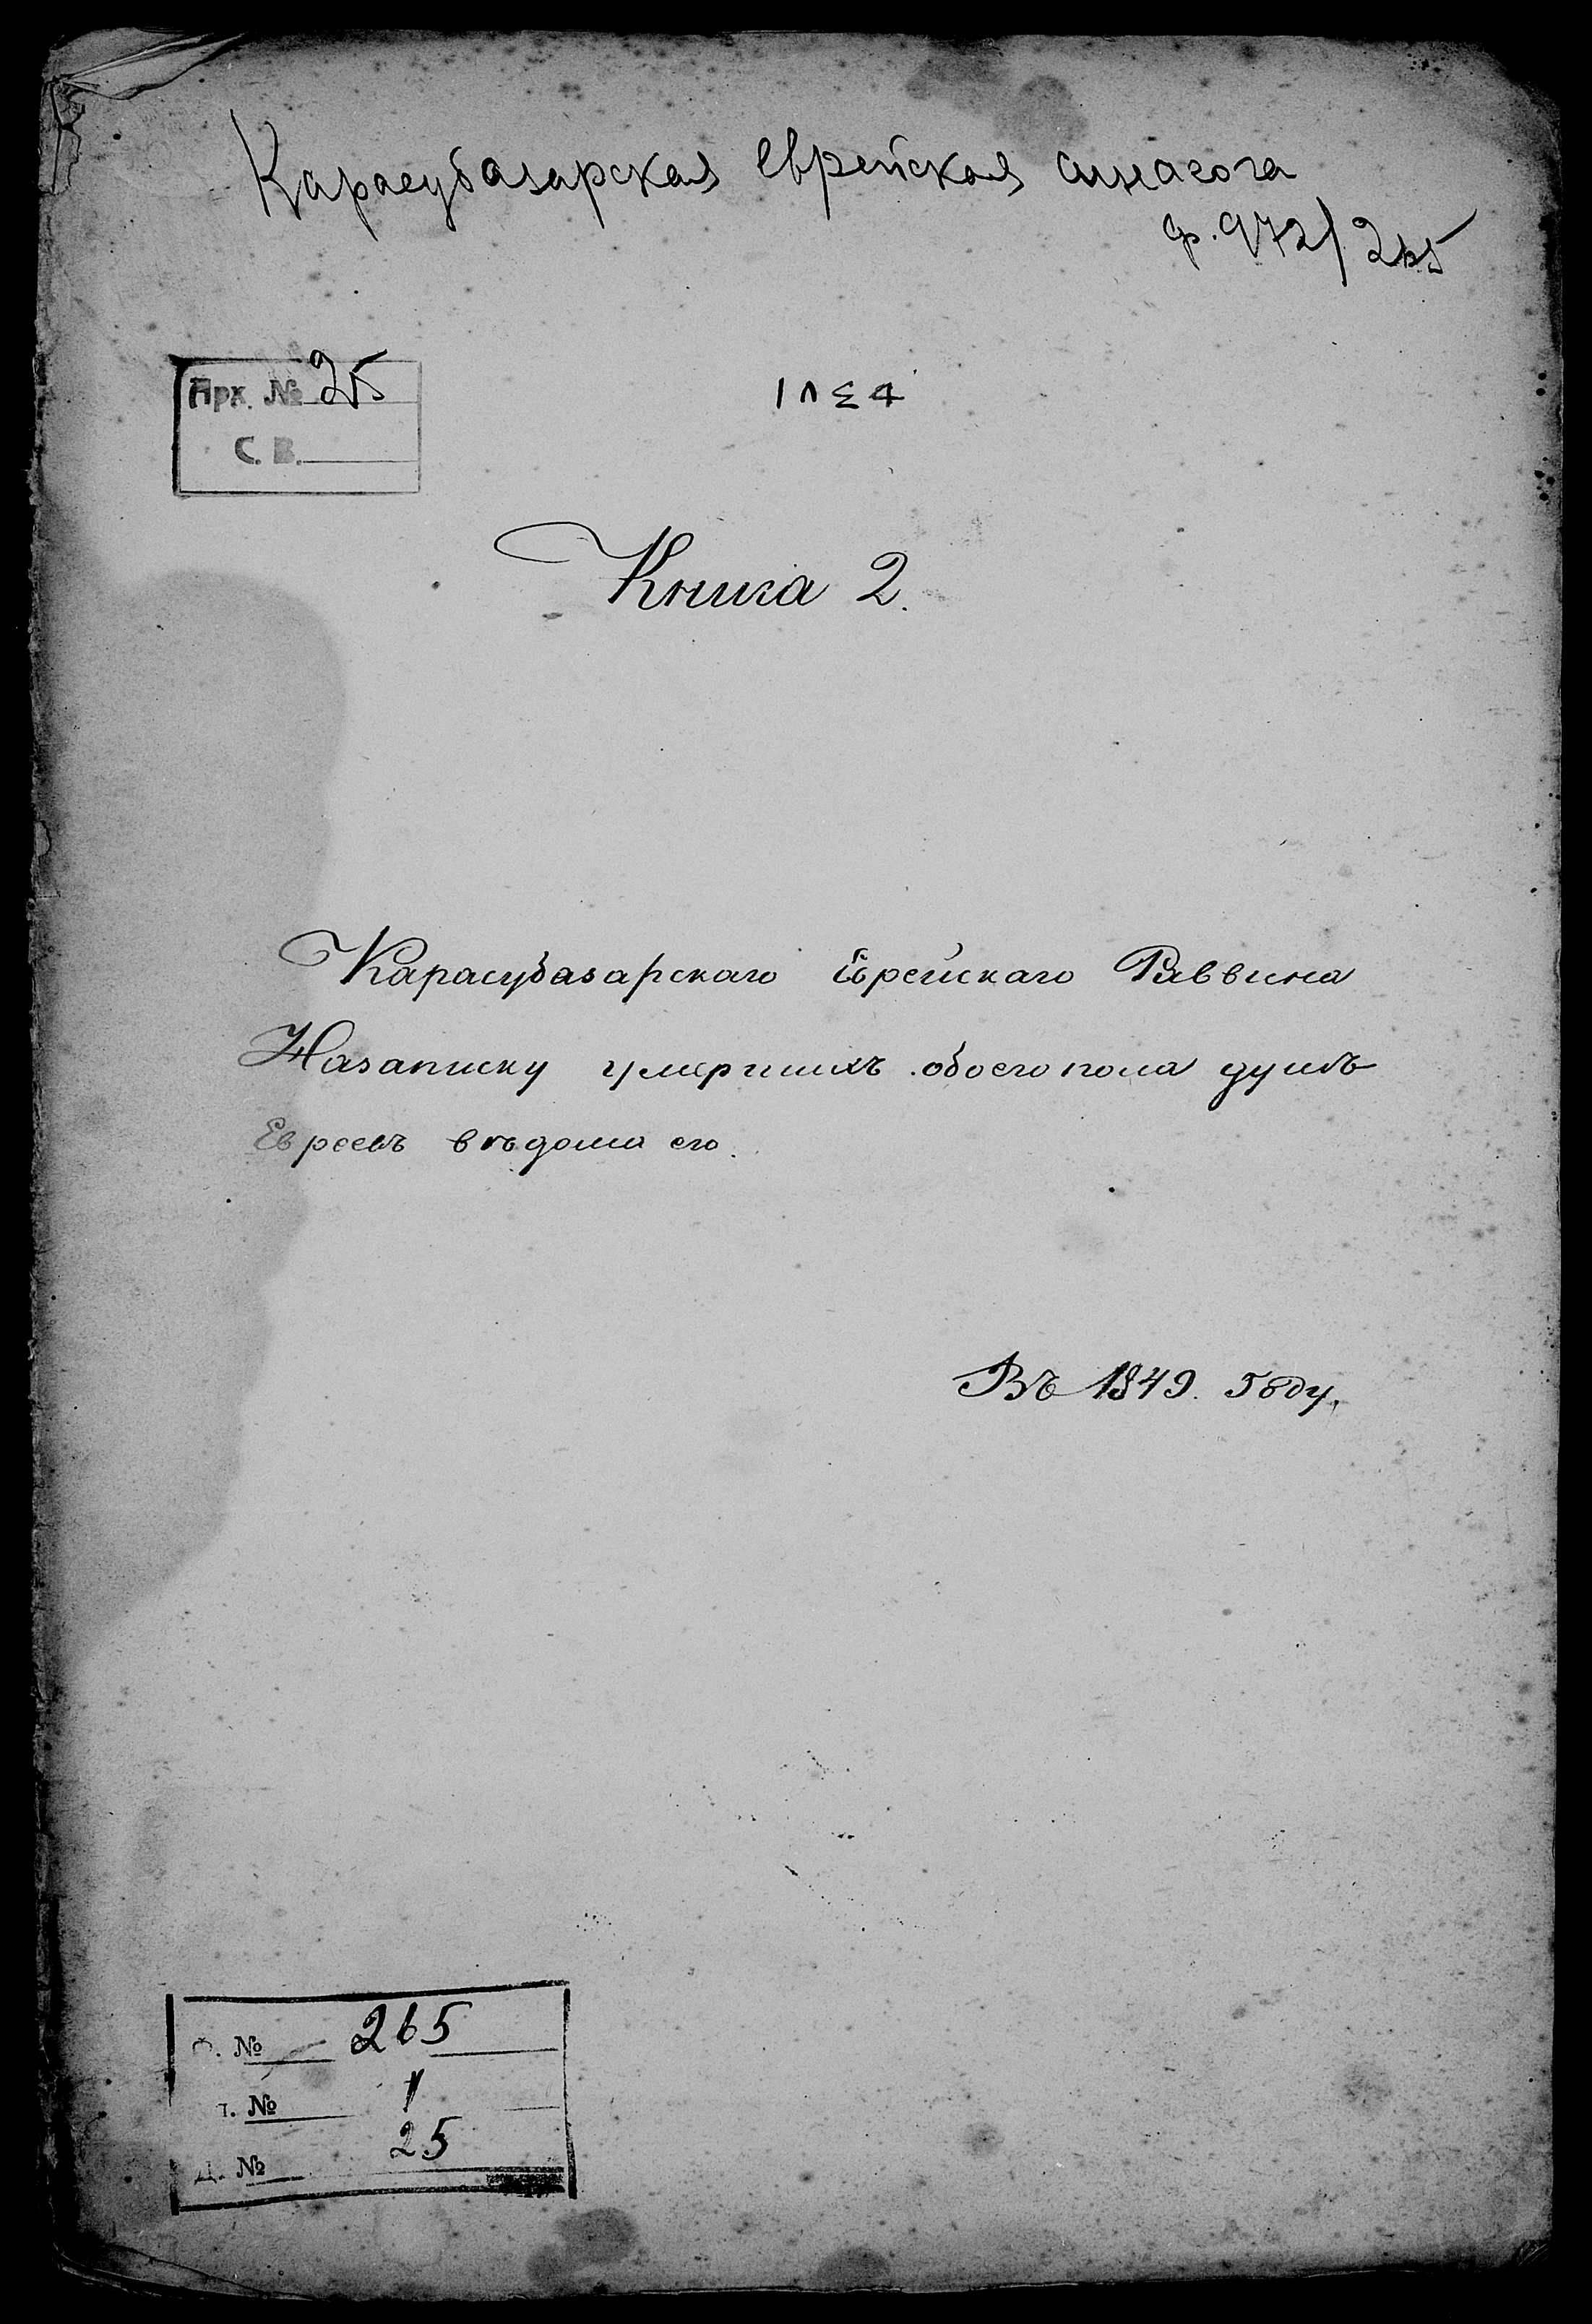 Карасубазарская еврейская синагога
ф. 972/265
Арх. № 25
С. В.
Книга 2.
Карасубазарскаго Еврейскаго Раввина
Назаписку умершихъ обоего пола душъ
Евреевъ ведома его.
Въ 1849. Году.
Ф. № 265
№ 1
Д. № 25